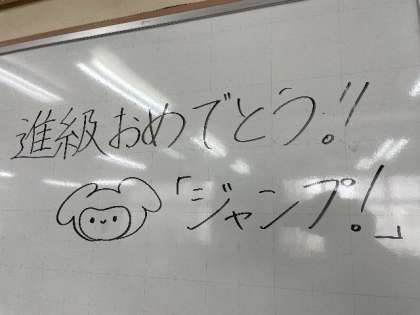 進級おめでとう!!
「ジャンプ!」